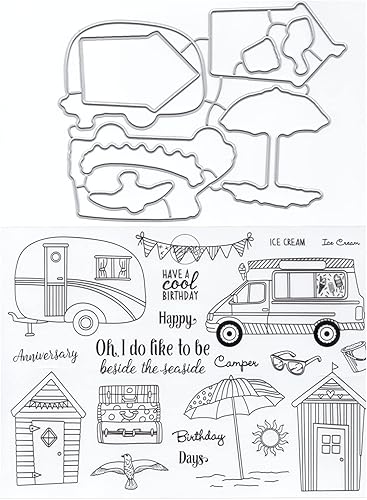 ICE CREAM
Ice Cream
HAVE A
cool
BIRTHDAY
Happy
Anniversary
Oh, I do like to be
beside the seaside
Camper
Birthday
Days